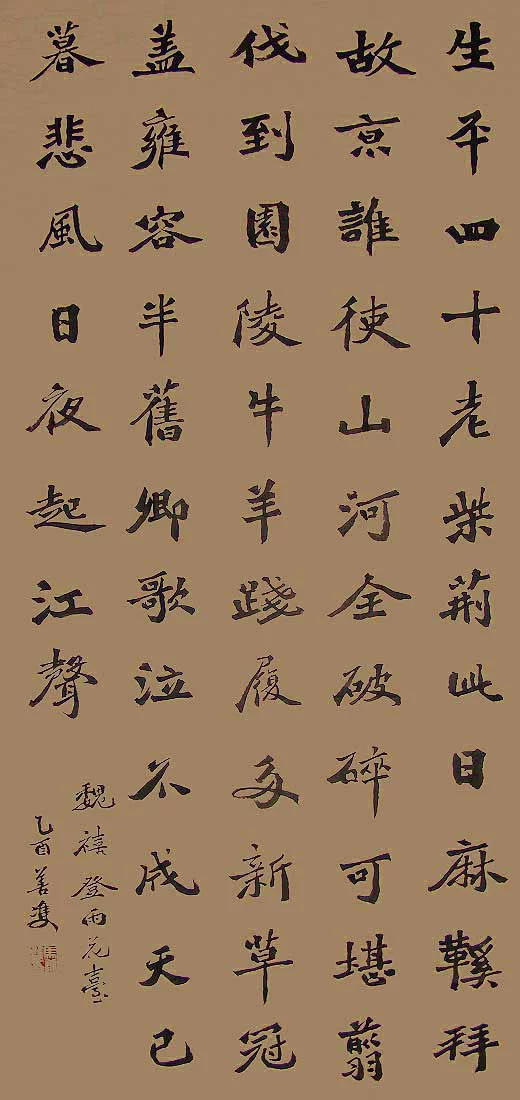 生平四十老柴荊此日麻鞵拜
故京誰使山河全破碎可堪翦
伐到園陵牛羊踐履多新草冠
盖雍容半舊卿歌泣不成天已
暮悲風日夜起江聲
魏禧登雨花臺
乙酉善雙